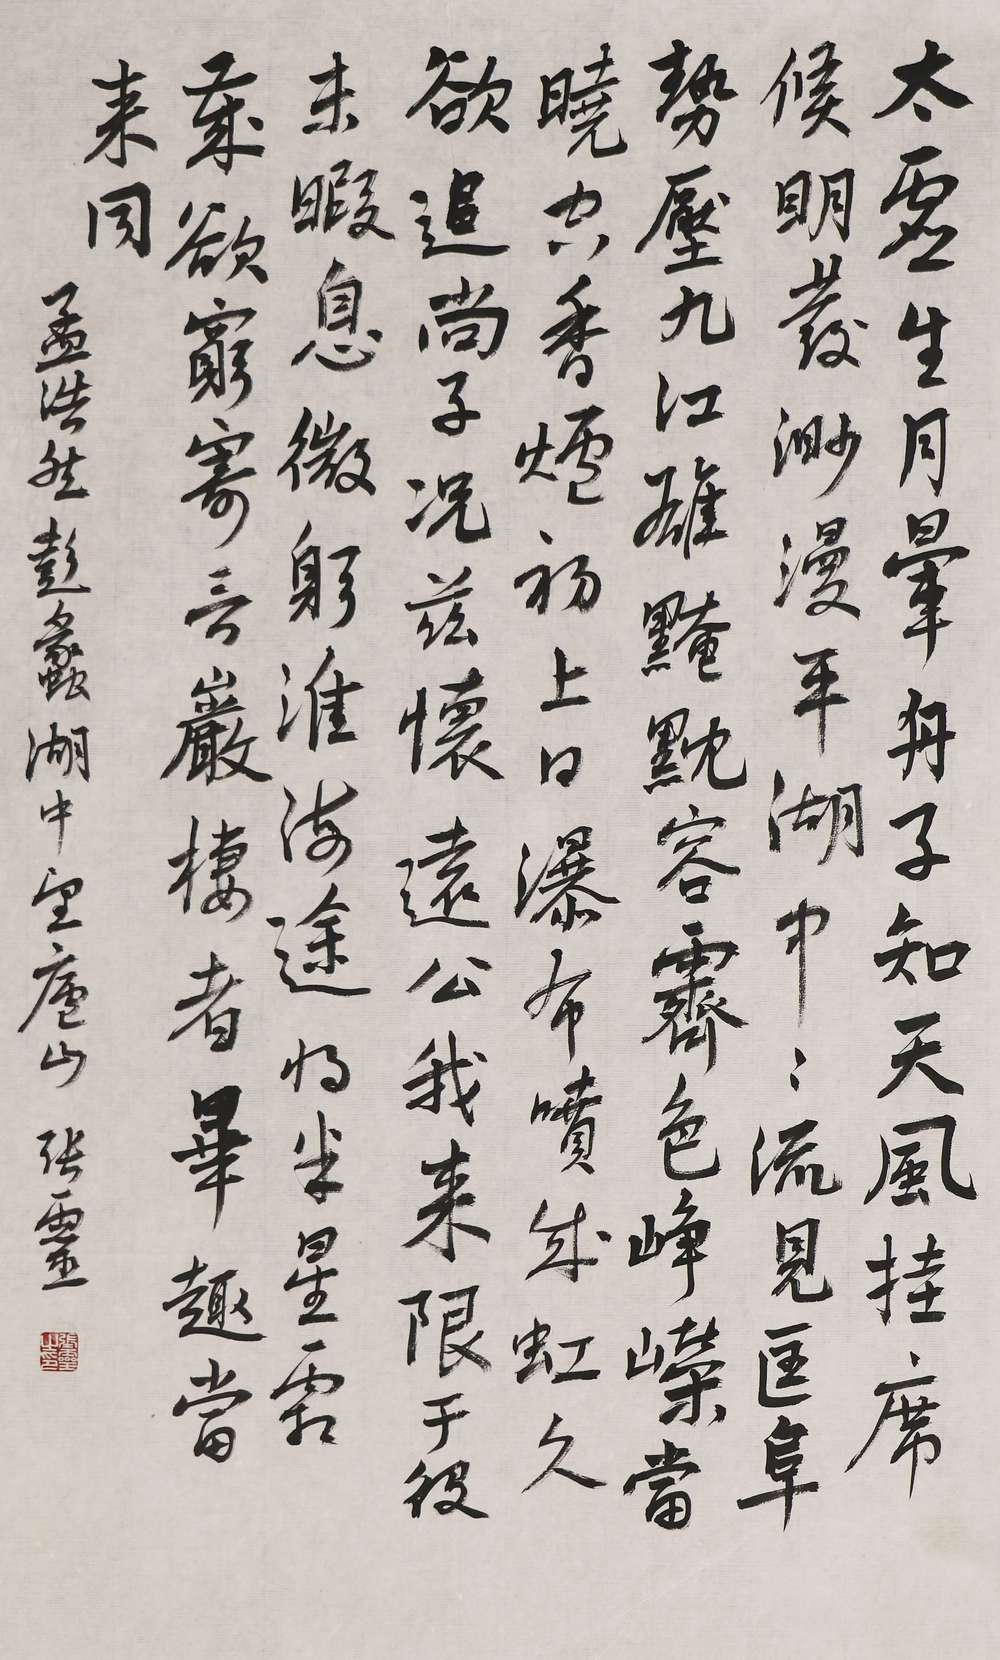 太虛生月暈舟子知天風挂席
候明發渺漫平湖中〻流見匡阜
勢壓九江雄黤黕容霽色崢嶸當
曉空香爐初上日瀑布噴成虹久
欲追尚子況茲懷遠公我来限于役
未暇息微躬淮海途將半星霜
歲欲窮寄言巖棲者畢趣當
来同
孟浩然彭蠡湖中望廬山 张靈